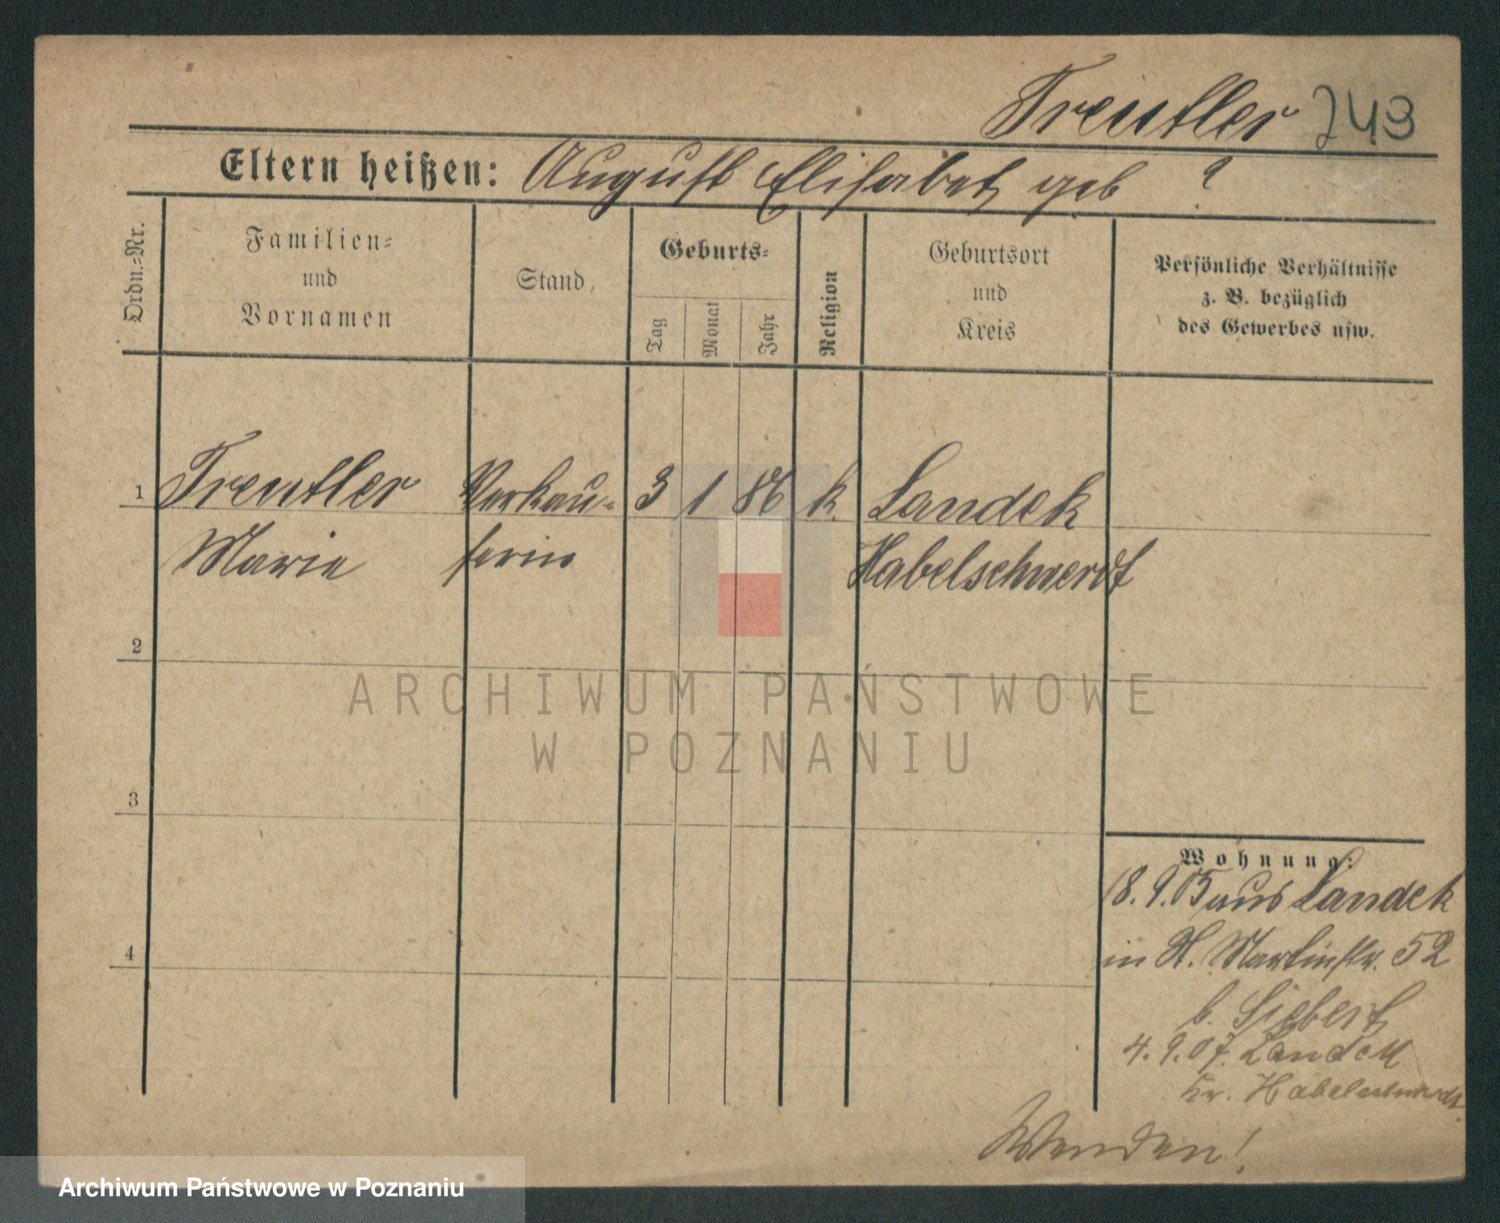 Trentler 243
Eltern heißen: August Elisabet geb ?
Ordn.-Nr.
Familien-
und
Vornamen
Stand
Geburts-
Tag
Monat
Jahr
Religion
Geburtsort
und
Kreis
Persönliche Verhältnisse
z. B. bezüglich
des Gewerbes usw.
1 Trentler Verkäu- 3 1 86 k. Landek
Marie ferin Habelschwerdt
2
ARCHIWUM PAŃSTWOWE
W POZNANIU
3
Wohnung:
18.9.05 aus Landek
in St. Martinstr. 52
b. Siebert
4.9.07. Landek
Kr. Habelschwerdt
4
Wenden!
Archiwum Państwowe w Poznaniu